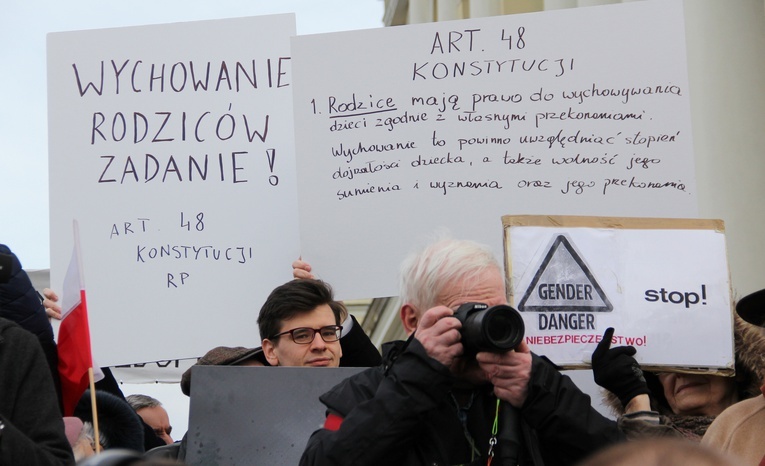 WYCHOWANIE
RODZICÓW
ZADANIE!
ART. 48
KONSTYTUCJI
RP
ART. 48
KONSTYTUCJI
1. Rodzice mają prawo do wychowywania
dzieci zgodnie z własnymi przekonaniami.
Wychowanie to powinno uwzględniać stopień
dojrzałości dziecka, a także wolność jego
sumienia i wyznania oraz jego przekonania.
GENDER
DANGER
stop!
NIEBEZPIECZEŃSTWO!
Nikon